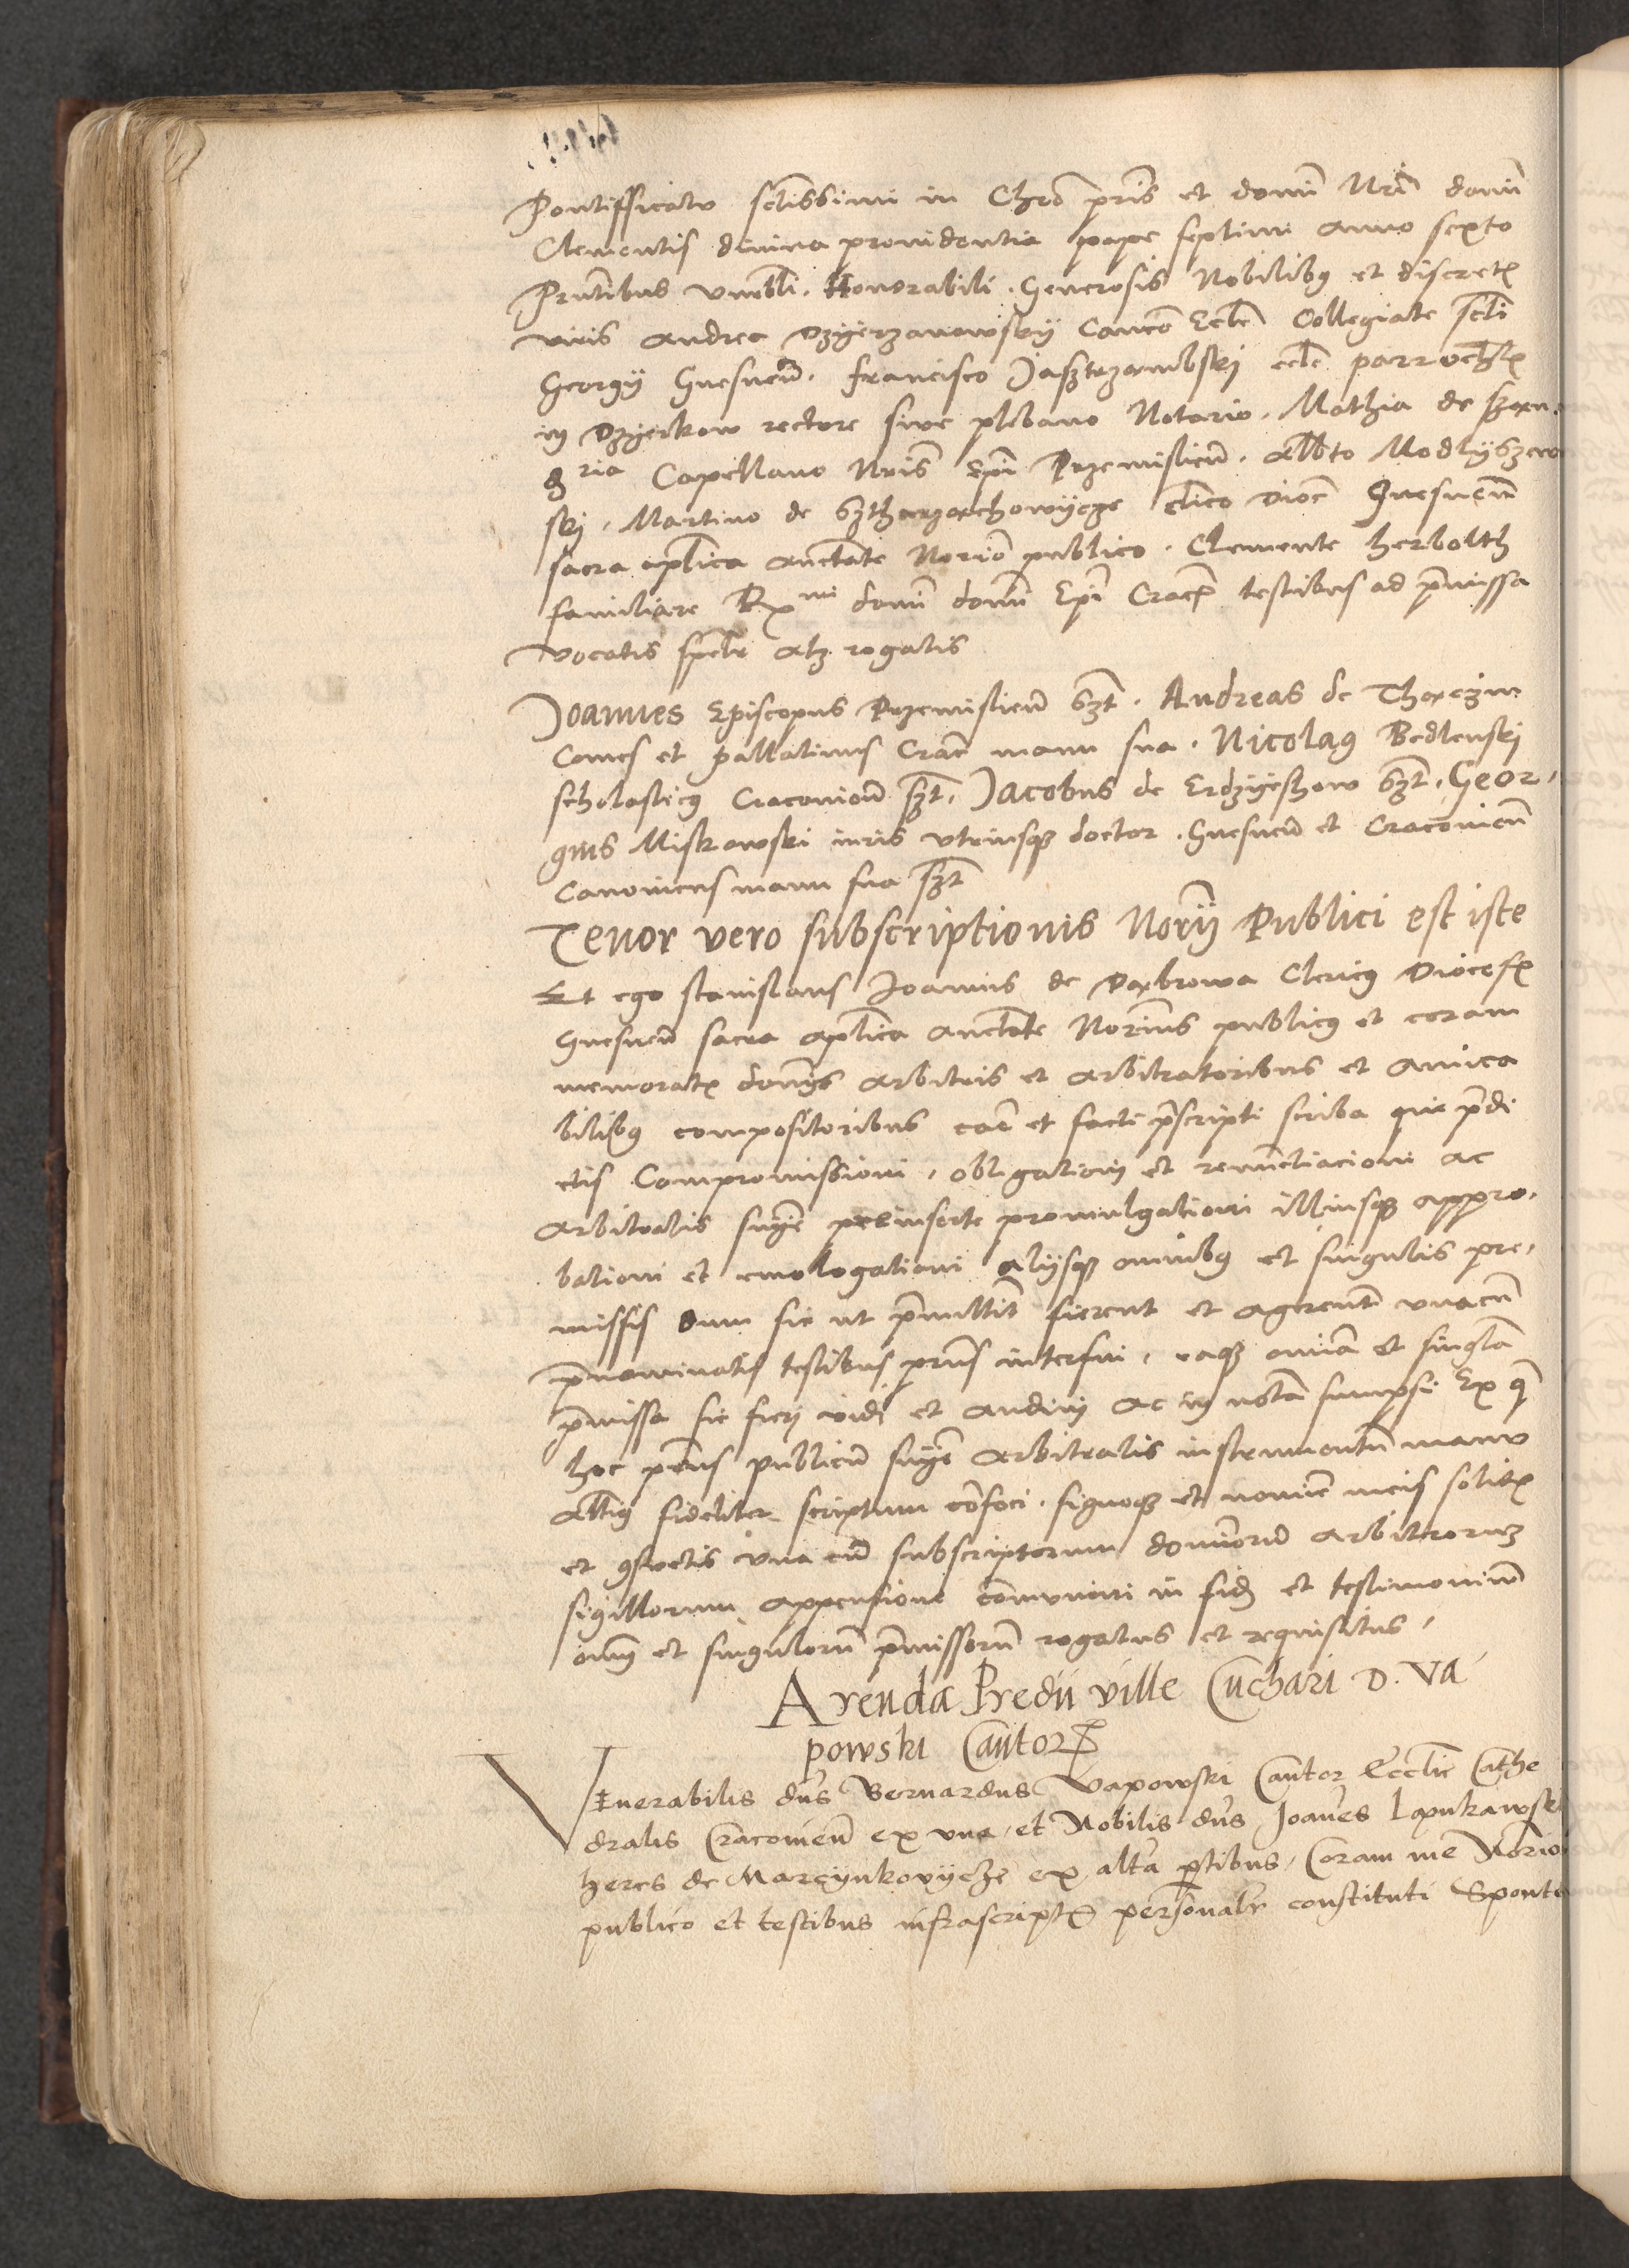 Pontifficatu sctissimi in Chro pris et domi Nri domi
Clementis divina providentia pape septimi anno sexto
Prntibus venebli. Honorabili. Generosis Nobilibus et discret
viris Andrea Dzyerzanowsky Canco Eccle Collegiate scti
Georgii Gnesnen. Francisco Jasztrzambski eccle parrochlis
in Dzyerkow rectore sive plebano Notario. Mathia de
Capellano Nris Epi Przemislien. Albto Modlyszew
ski. Martino de clico dioc Gnesnen
sacra aplica auctate Norio publico. Clemente herbolth
familiare Rmi domi domi Epi Cracen testibus ad premissa
vocatis specialr atq rogatis
Joannes Episcopus Przemislien sszt. Andreas de Thaczin
Comes et pallatinus Crac manu sua. Nicolaus Bedlenski
scholasticus Cracovien sszt. Jacobus de Erdzyeszow sszt. Geor
gius Miskowski iuris utriusque doctor. Gnesnen et Cracovien
Canonicus manu sua sszt
Tenor vero subscriptionis Norii Publici est iste
Et ego Stanislaus Joannis de Dabrowa Clericus Diocesis
Gnesnen sacra aplica auctate Norius publicus et coram
memorat dominis arbitris et arbitratoribus et amica
bilibus compositoribus cae et facti prescripti scriba quia predi
ctis Compromissioni, obligationi et renunctiacioni ac
arbitralis snie preinserte promulgationi illiusque appro
bationi et emologationi aliisque omnibus et singulis pre
missis dum sic ut premittit fierent et agerent unacum
prenominatis testibus prns interfui, eaque omnia et singla
premissa sic fieri vidi et audivi ac in notam sumpsi Ex quo
hoc prens publicum snie arbitralis instrumentum manu
alterius fideliter scriptum confeci. signoque et nomine meis solitis
et consuetis una cum subscriptorum dominorum arbitrorum
sigillorum appensione communivi in fidem et testimonium
omnium et singulorum premissorum rogatus et requisitus,
Arenda Predii ville Cuchari D. Va
powski Cantoris
Venerabilis dns Bernardus Vapowski Cantor Ecclie Cathe
dralis Cracovien ex una, et Nobilis dns Joannes Lapukawski
heres de Marcynkovycze ex altera partibus, Coram me Norio
publico et testibus infrascriptis personalr constituti Sponte